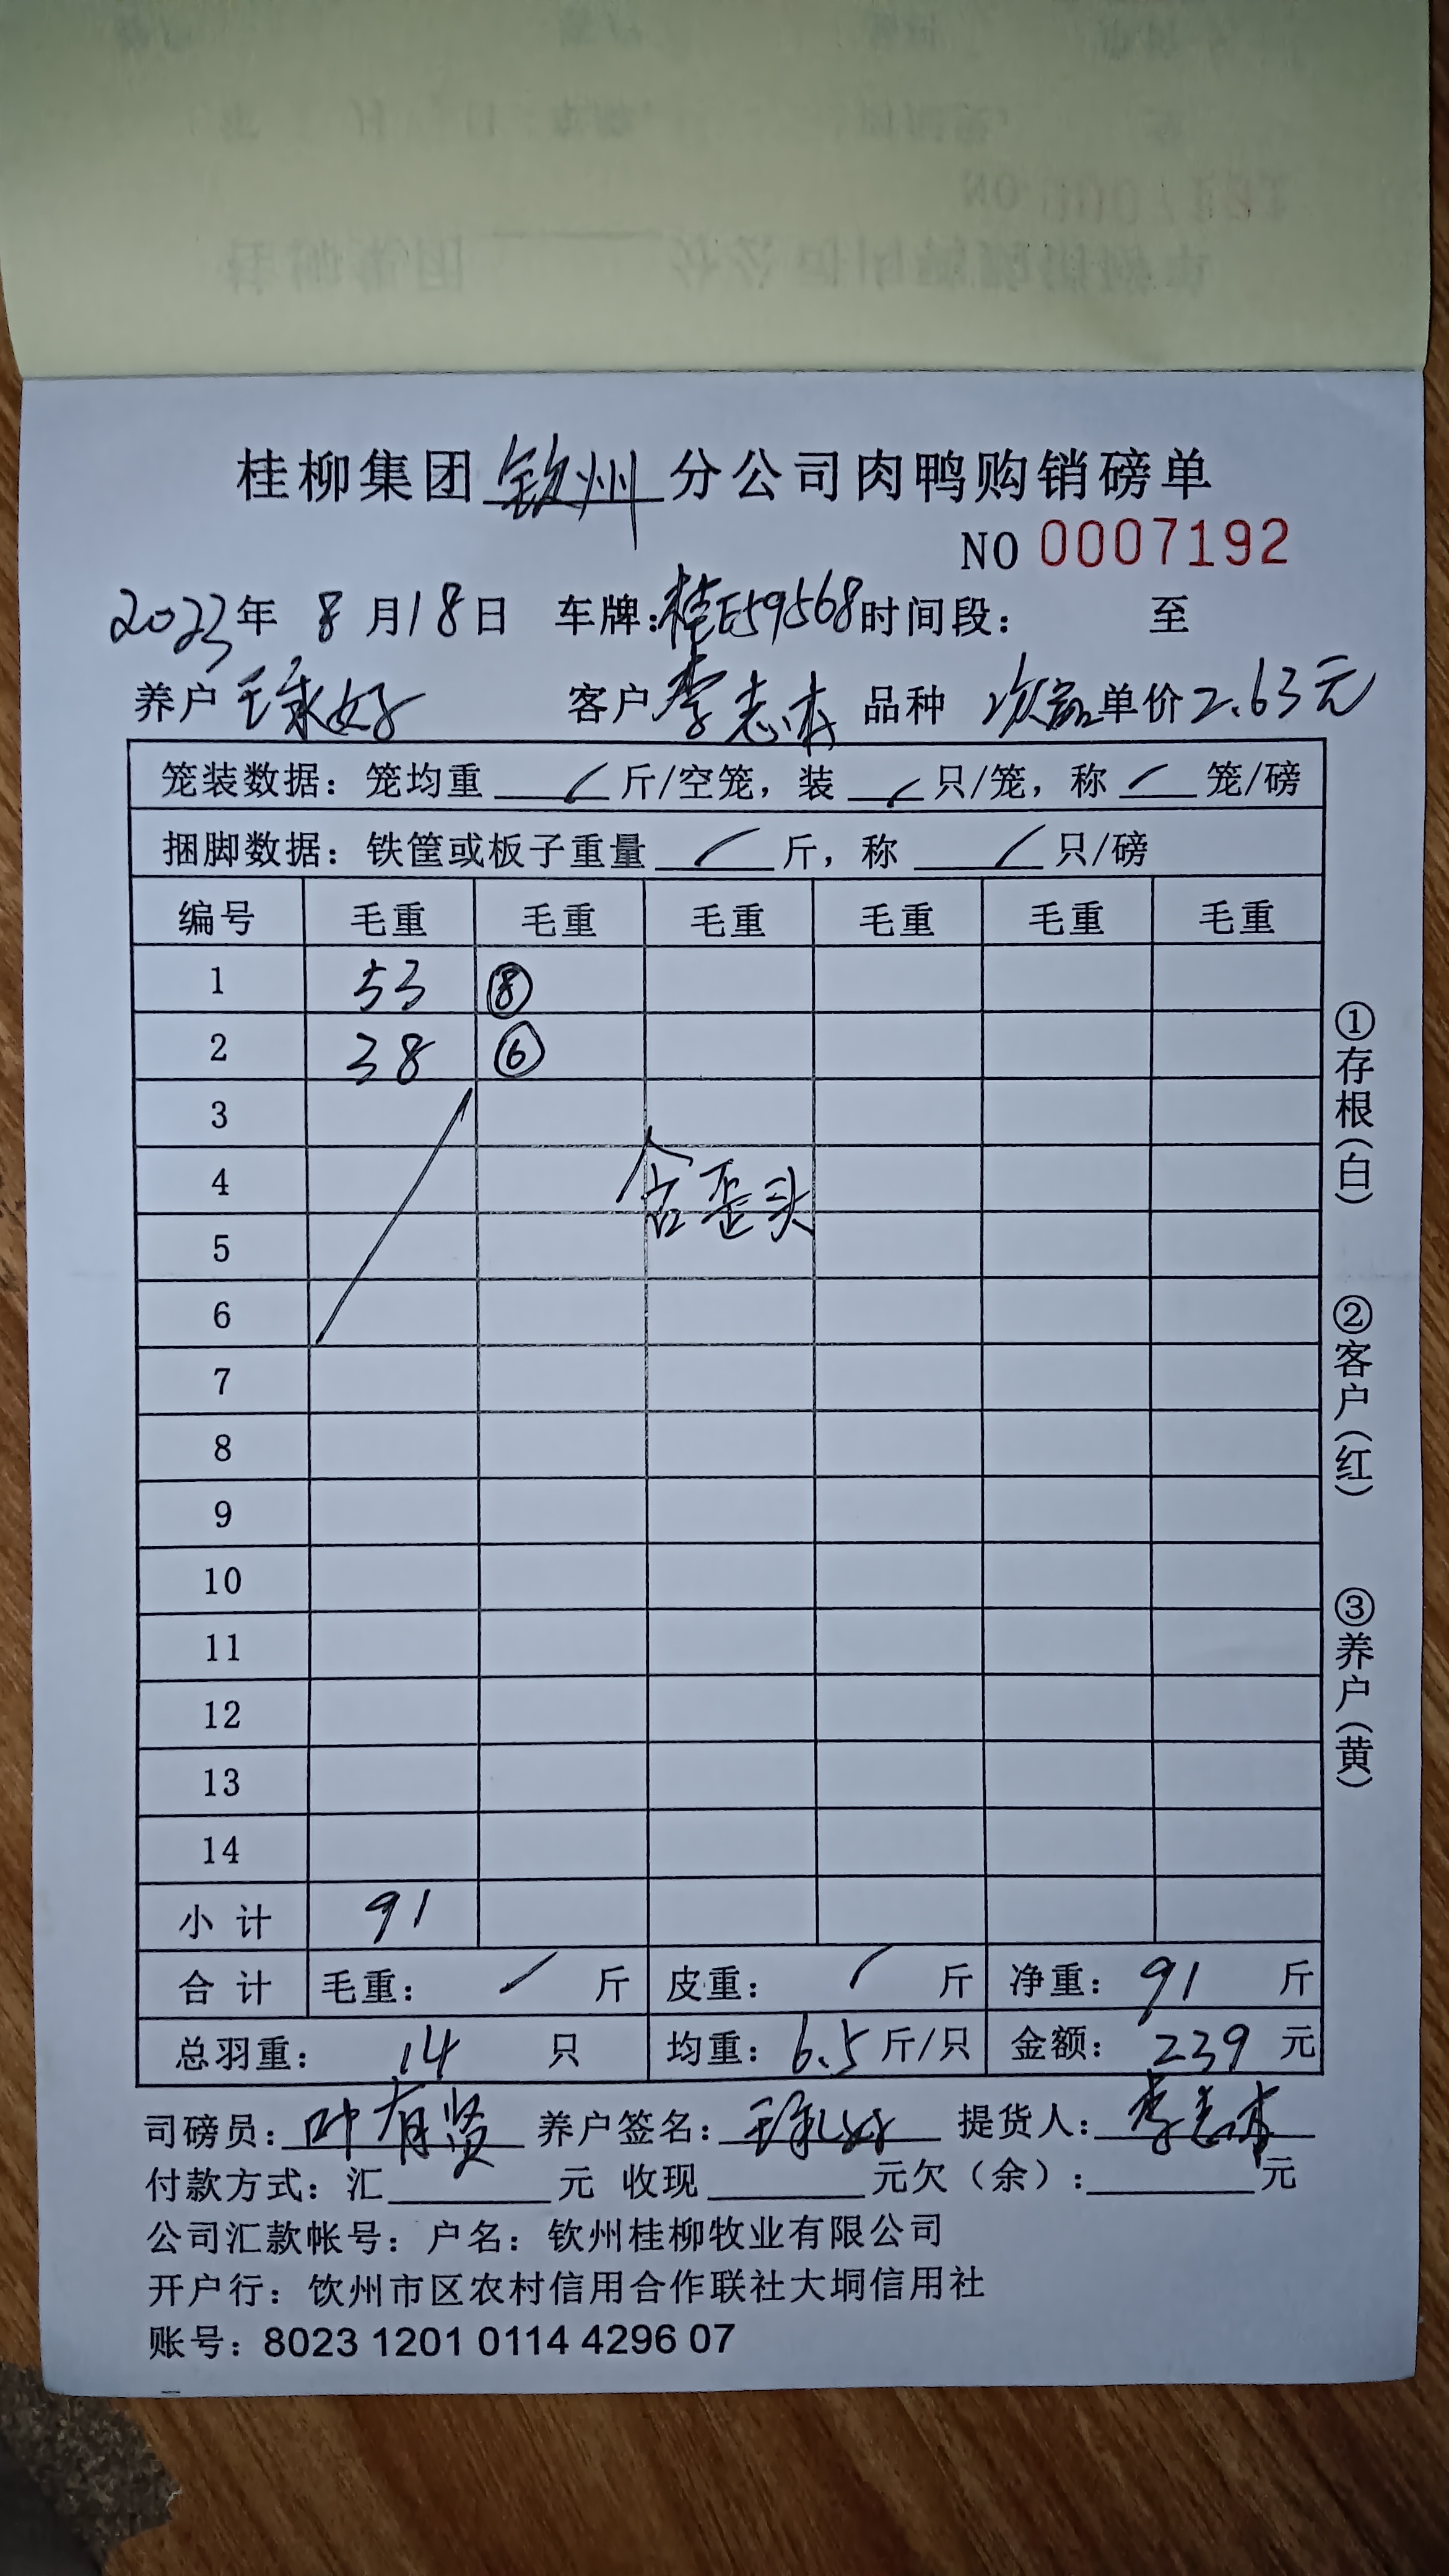 桂柳集团钦州分公司肉鸭购销磅单
NO 0007192
2023年 8月18日 车牌:桂E59568时间段: 至
养户 客户李志 品种 次品单价2.63元
笼装数据: 笼均重 / 斤/空笼, 装 / 只/笼, 称 / 笼/磅
捆脚数据: 铁筐或板子重量 / 斤, 称 / 只/磅
编号 毛重 毛重 毛重 毛重 毛重 毛重
1 53 ⑧
2 38 ⑥
3
4 含歪头
5
6
7
8
9
10
11
12
13
14
小计 91
合计 毛重: / 斤 皮重: / 斤 净重: 91 斤
总羽重: 14 只 均重: 6.5斤/只 金额: 239元
司磅员: 叶有贤 养户签名: 提货人: 李志
付款方式: 汇 元 收现 元欠(余): 元
公司汇款帐号: 户名: 钦州桂柳牧业有限公司
开户行: 饮州市区农村信用合作联社大垌信用社
账号: 8023 1201 0114 4296 07
①存根(白)
②客户(红)
③养户(黄)